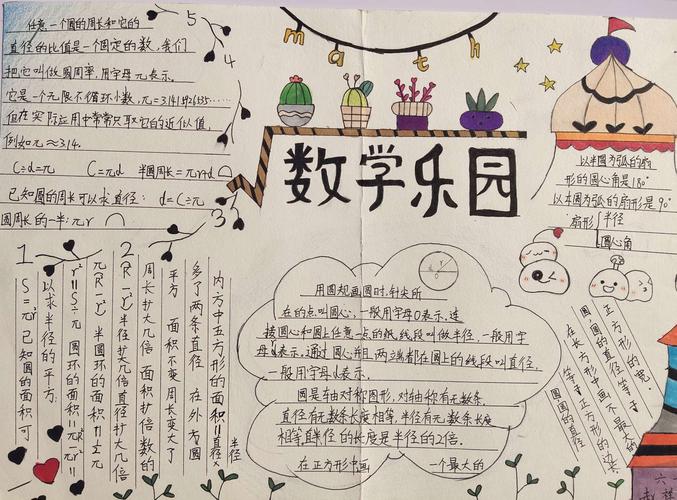 math
数学乐园
任意一个圆的周长和它的
直径的比值是一个固定的数,我们
把它叫做圆周率,用字母π表示。
它是一个无限不循环小数,π=3.1415926535……
但在实际应用中常常只取它的近似值,
例如π≈3.14.
C÷d=π C=πd 半圆周长=πr+d
已知圆的周长可以求直径: d=C÷π
圆周长的一半:πr
5
4
3
2
1
S=πr² 已知圆的面积可
以求半径的平方:
r²=S÷π 圆环的面积=πR²-πr²
半圆环的面积=
2R-r 半径扩大几倍直径扩大几倍
周长扩大几倍 面积扩倍数的
平方 面积不变 周长变大了
多了两条直径 在外方圆
内方中正方形的面积=直径×
半径
用圆规画圆时,针尖所
在的点叫圆心,一般用字母O表示,连
接圆心和圆上任意一点的线段叫做半径,一般用字
母r表示。通过圆心并且两端都在圆上的线段叫直径,
一般用字母d表示。
圆是轴对称图形,对轴称有无数条,
直径有无数条长度相等,半径有无数条长度
相等,直径的长度是半径的2倍.
在正方形中画 一个最大的
圆,圆的直径等于
正方形的宽,
在长方形中画一个最大的
等于正方形的边长
圆圆的直径
以半圆为弧的扇
形的圆心角是180°
以本圆为弧的扇形是90°
扇形 半径
圆心角
六